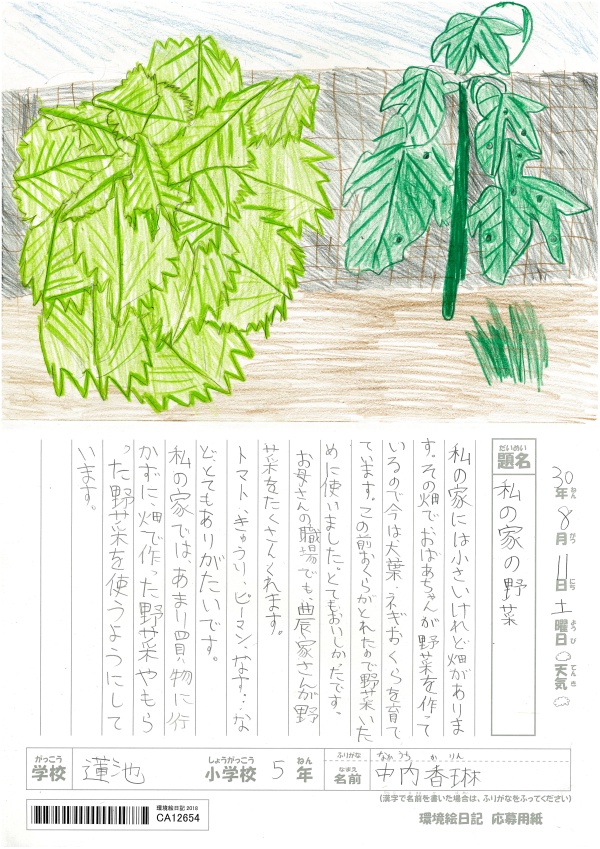 30年8月11日土曜日 天気
ねん がつ にち ようび てんき
だいめい
題名 私の家の野菜
私の家には小さいけれど畑がありま
す。その畑で、おばあちゃんが野菜を作って
いるので今は大葉・ネギ・おくらを育て
ています。この前おくらがとれたので野菜いた
めに使いました。とてもおいしかたです。
お母さんの職場でも、農家さんが野
菜をたくさんくれます。
トマト、きゅうり、ピーマン、なす…な
ど、とてもありがたいです。
私の家では、あまり買い物に行
かずに畑で作った野菜やもら
った野菜を使うようにして
います。
がっこう しょうがっこう ねん ふりがな なかうち かりん
学校 蓮池 小学校 5年 なまえ 名前 中内香琳
(漢字で名前を書いた場合は、ふりがなをふってください)
環境絵日記 2018
CA12654
環境絵日記 応募用紙